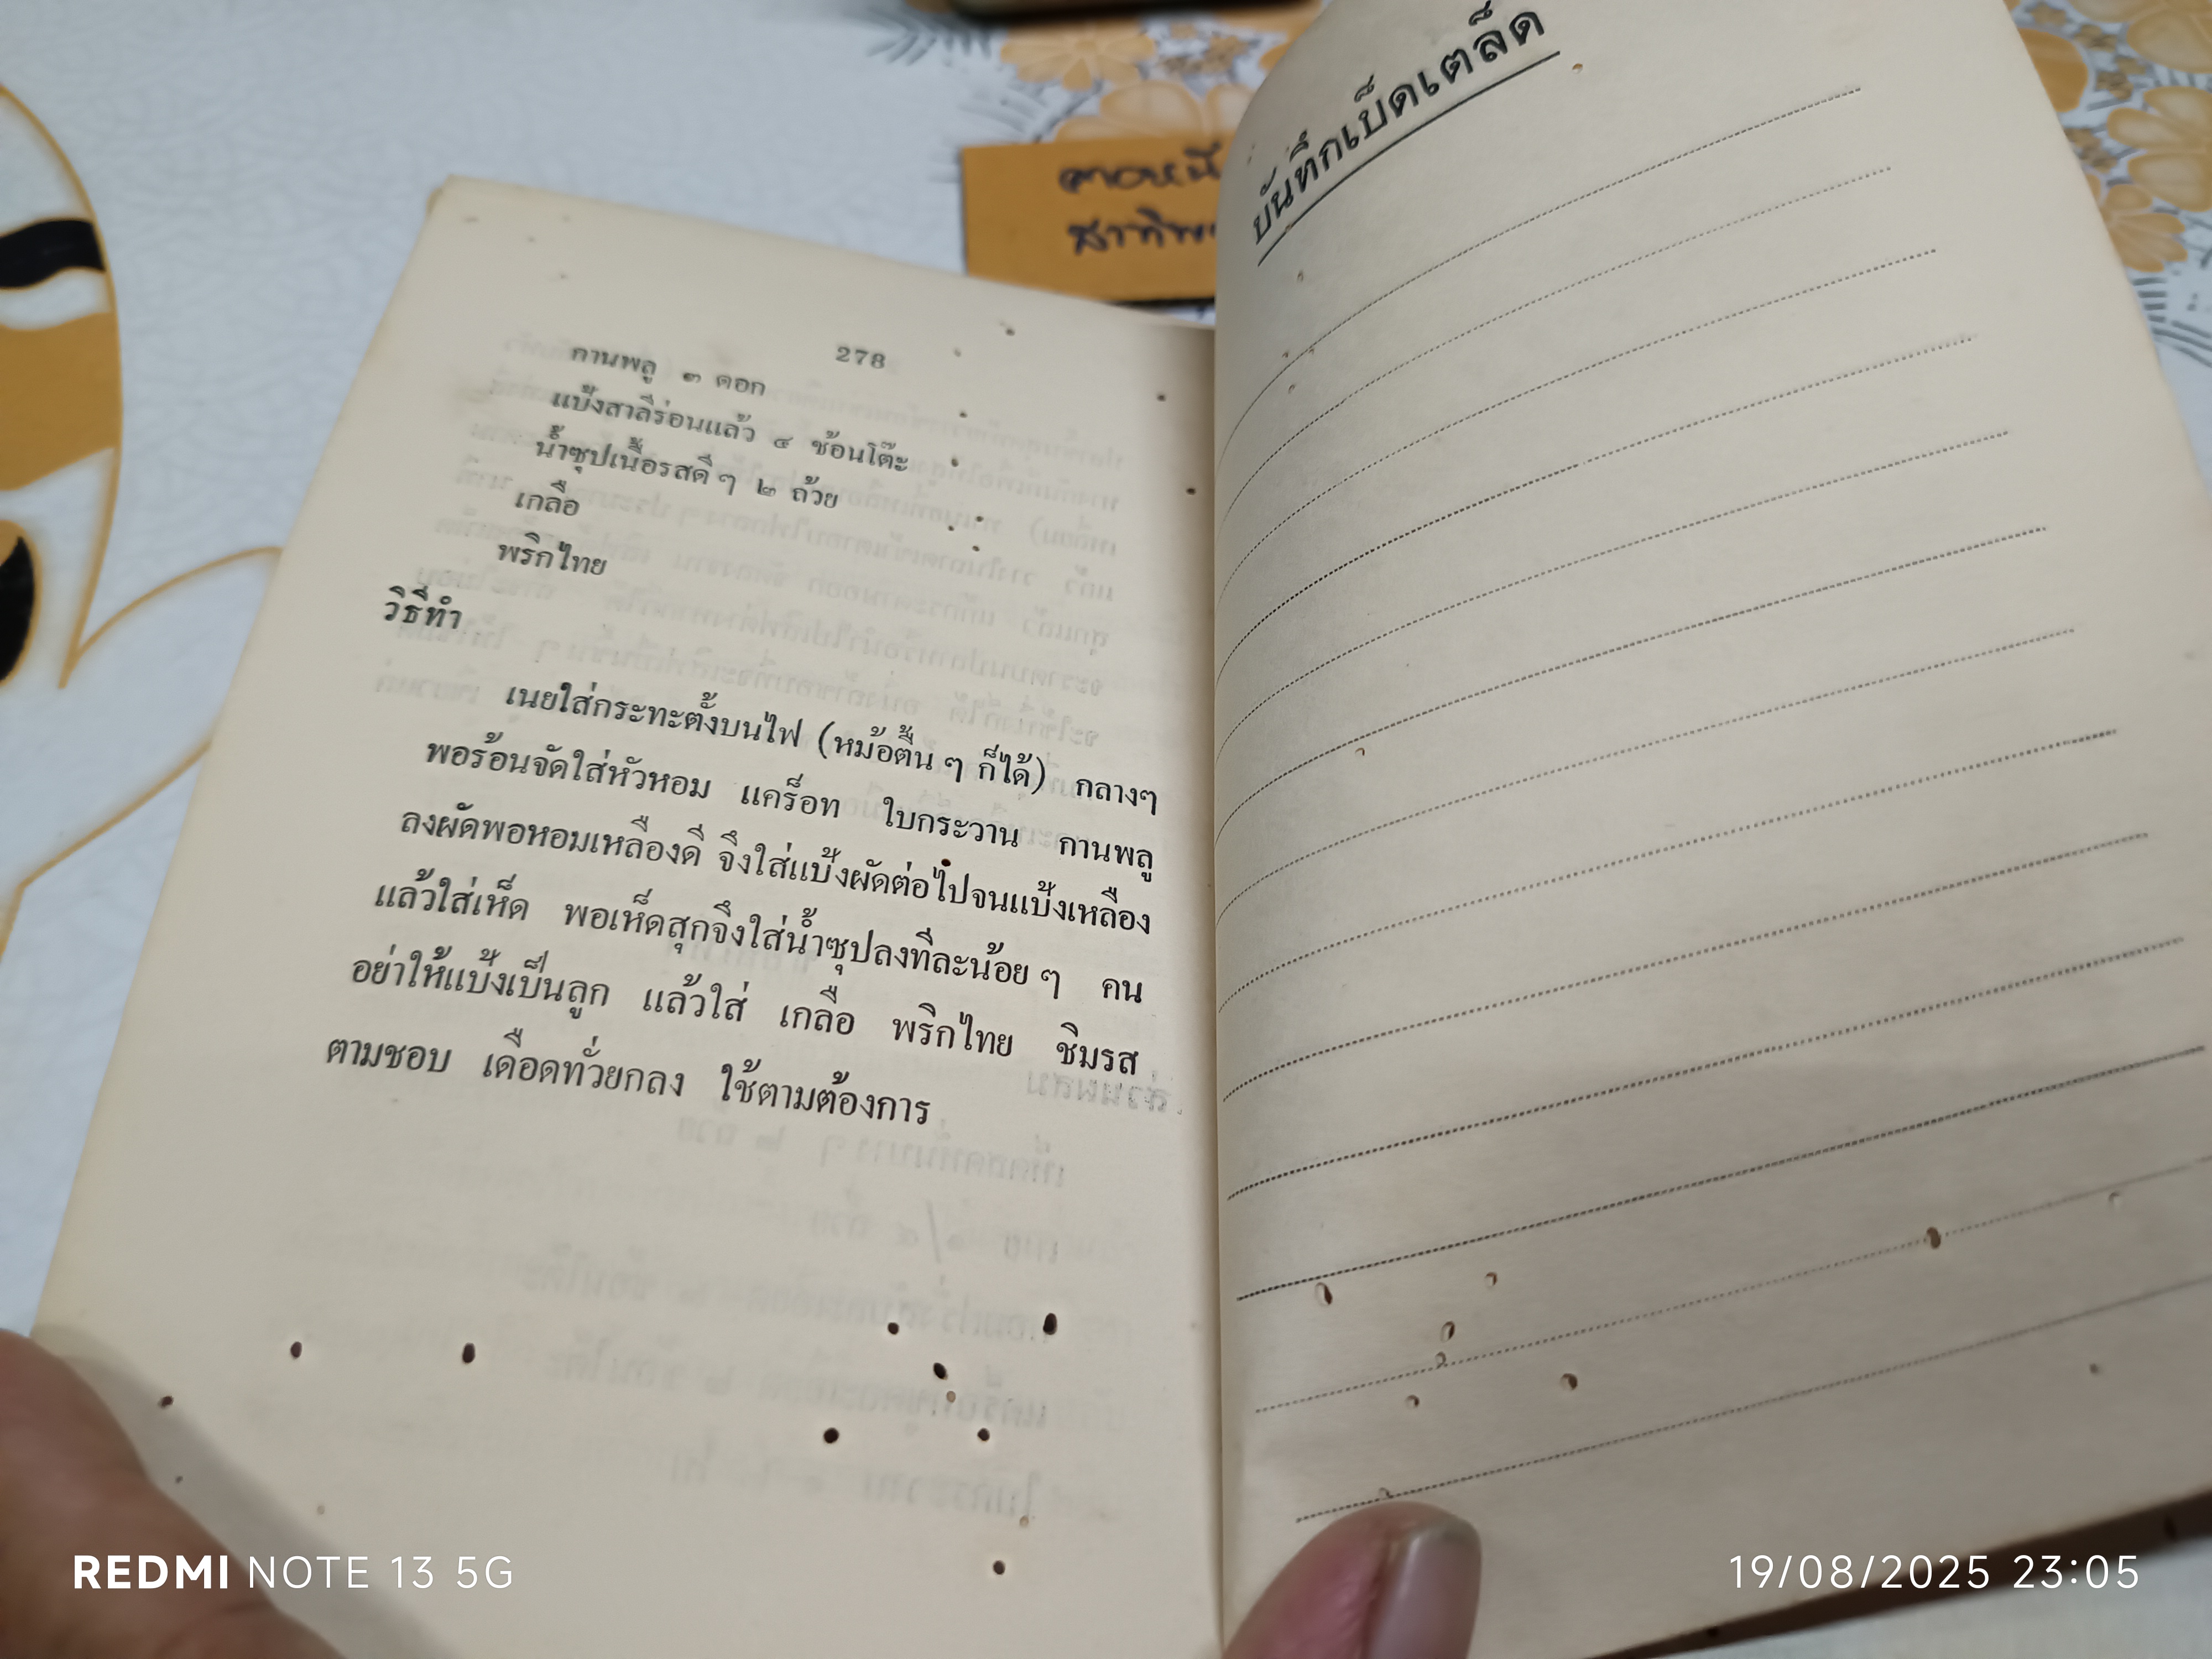 278
กานพลู ๓ ดอก
แป้งสาลีร่อนแล้ว ๔ ช้อนโต๊ะ
น้ำซุปเนื้อรสดี ๆ ๒ ถ้วย
เกลือ
พริกไทย
วิธีทำ
เนยใส่กระทะตั้งบนไฟ (หม้อตื้น ๆ ก็ได้) กลางๆ
พอร้อนจัดใส่หัวหอม แคร็อท ใบกระวาน กานพลู
ลงผัดพอหอมเหลืองดี จึงใส่แป้งผัดต่อไปจนแป้งเหลือง
แล้วใส่เห็ด พอเห็ดสุกจึงใส่น้ำซุปลงทีละน้อย ๆ คน
อย่าให้แป้งเป็นลูก แล้วใส่ เกลือ พริกไทย ชิมรส
ตามชอบ เดือดทั่วยกลง ใช้ตามต้องการ
บันทึกเบ็ดเตล็ด
REDMI NOTE 13 5G
19/08/2025 23:05